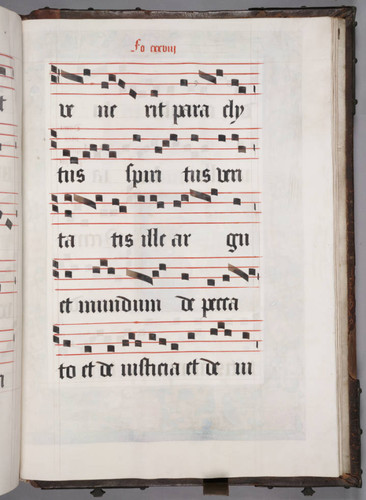 Fo cxxviii
ve ne rit para cly
tus spiri tus veri
ta tis ille ar gu
et mundum de pecca
to et de iusticia et de iu